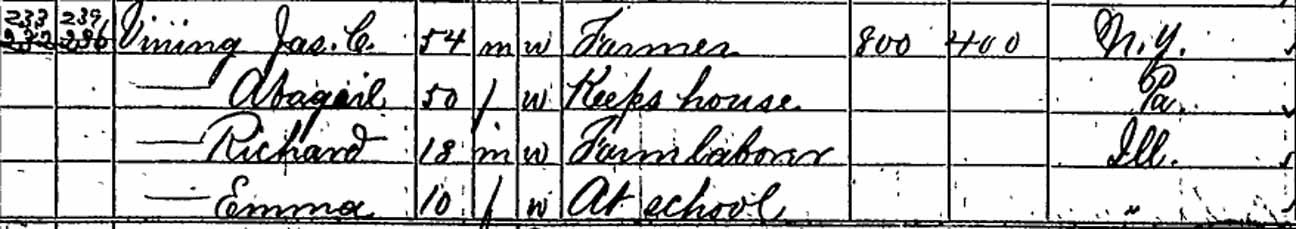 233 239 Vining Jas. C. 54 m w Farmer 800 400 N.Y.
232 236 — Abagail 50 f w Keeps house Pa.
— Richard 18 m w Farm laborer Ill.
— Emma 10 f w At school "